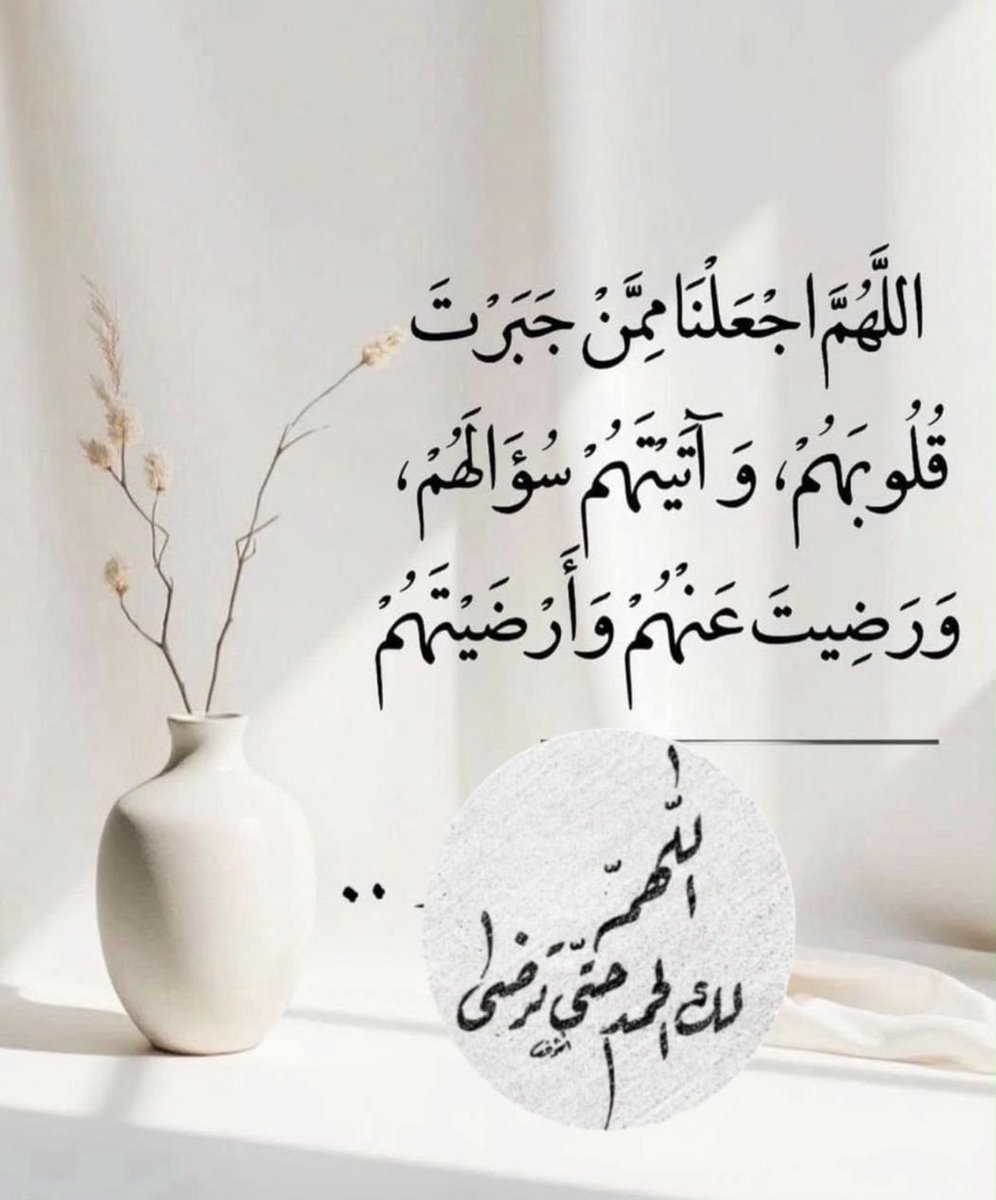 اللَّهُمَّ اجْعَلْنَا مِمَّنْ جَبَرْتَ
قُلُوبَهُمْ، وَآتَيْتَهُمْ سُؤَالَهُمْ،
وَرَضِيتَ عَنْهُمْ وَأَرْضَيْتَهُمْ
اللّهمّ
لك الحمد حتّى ترضى